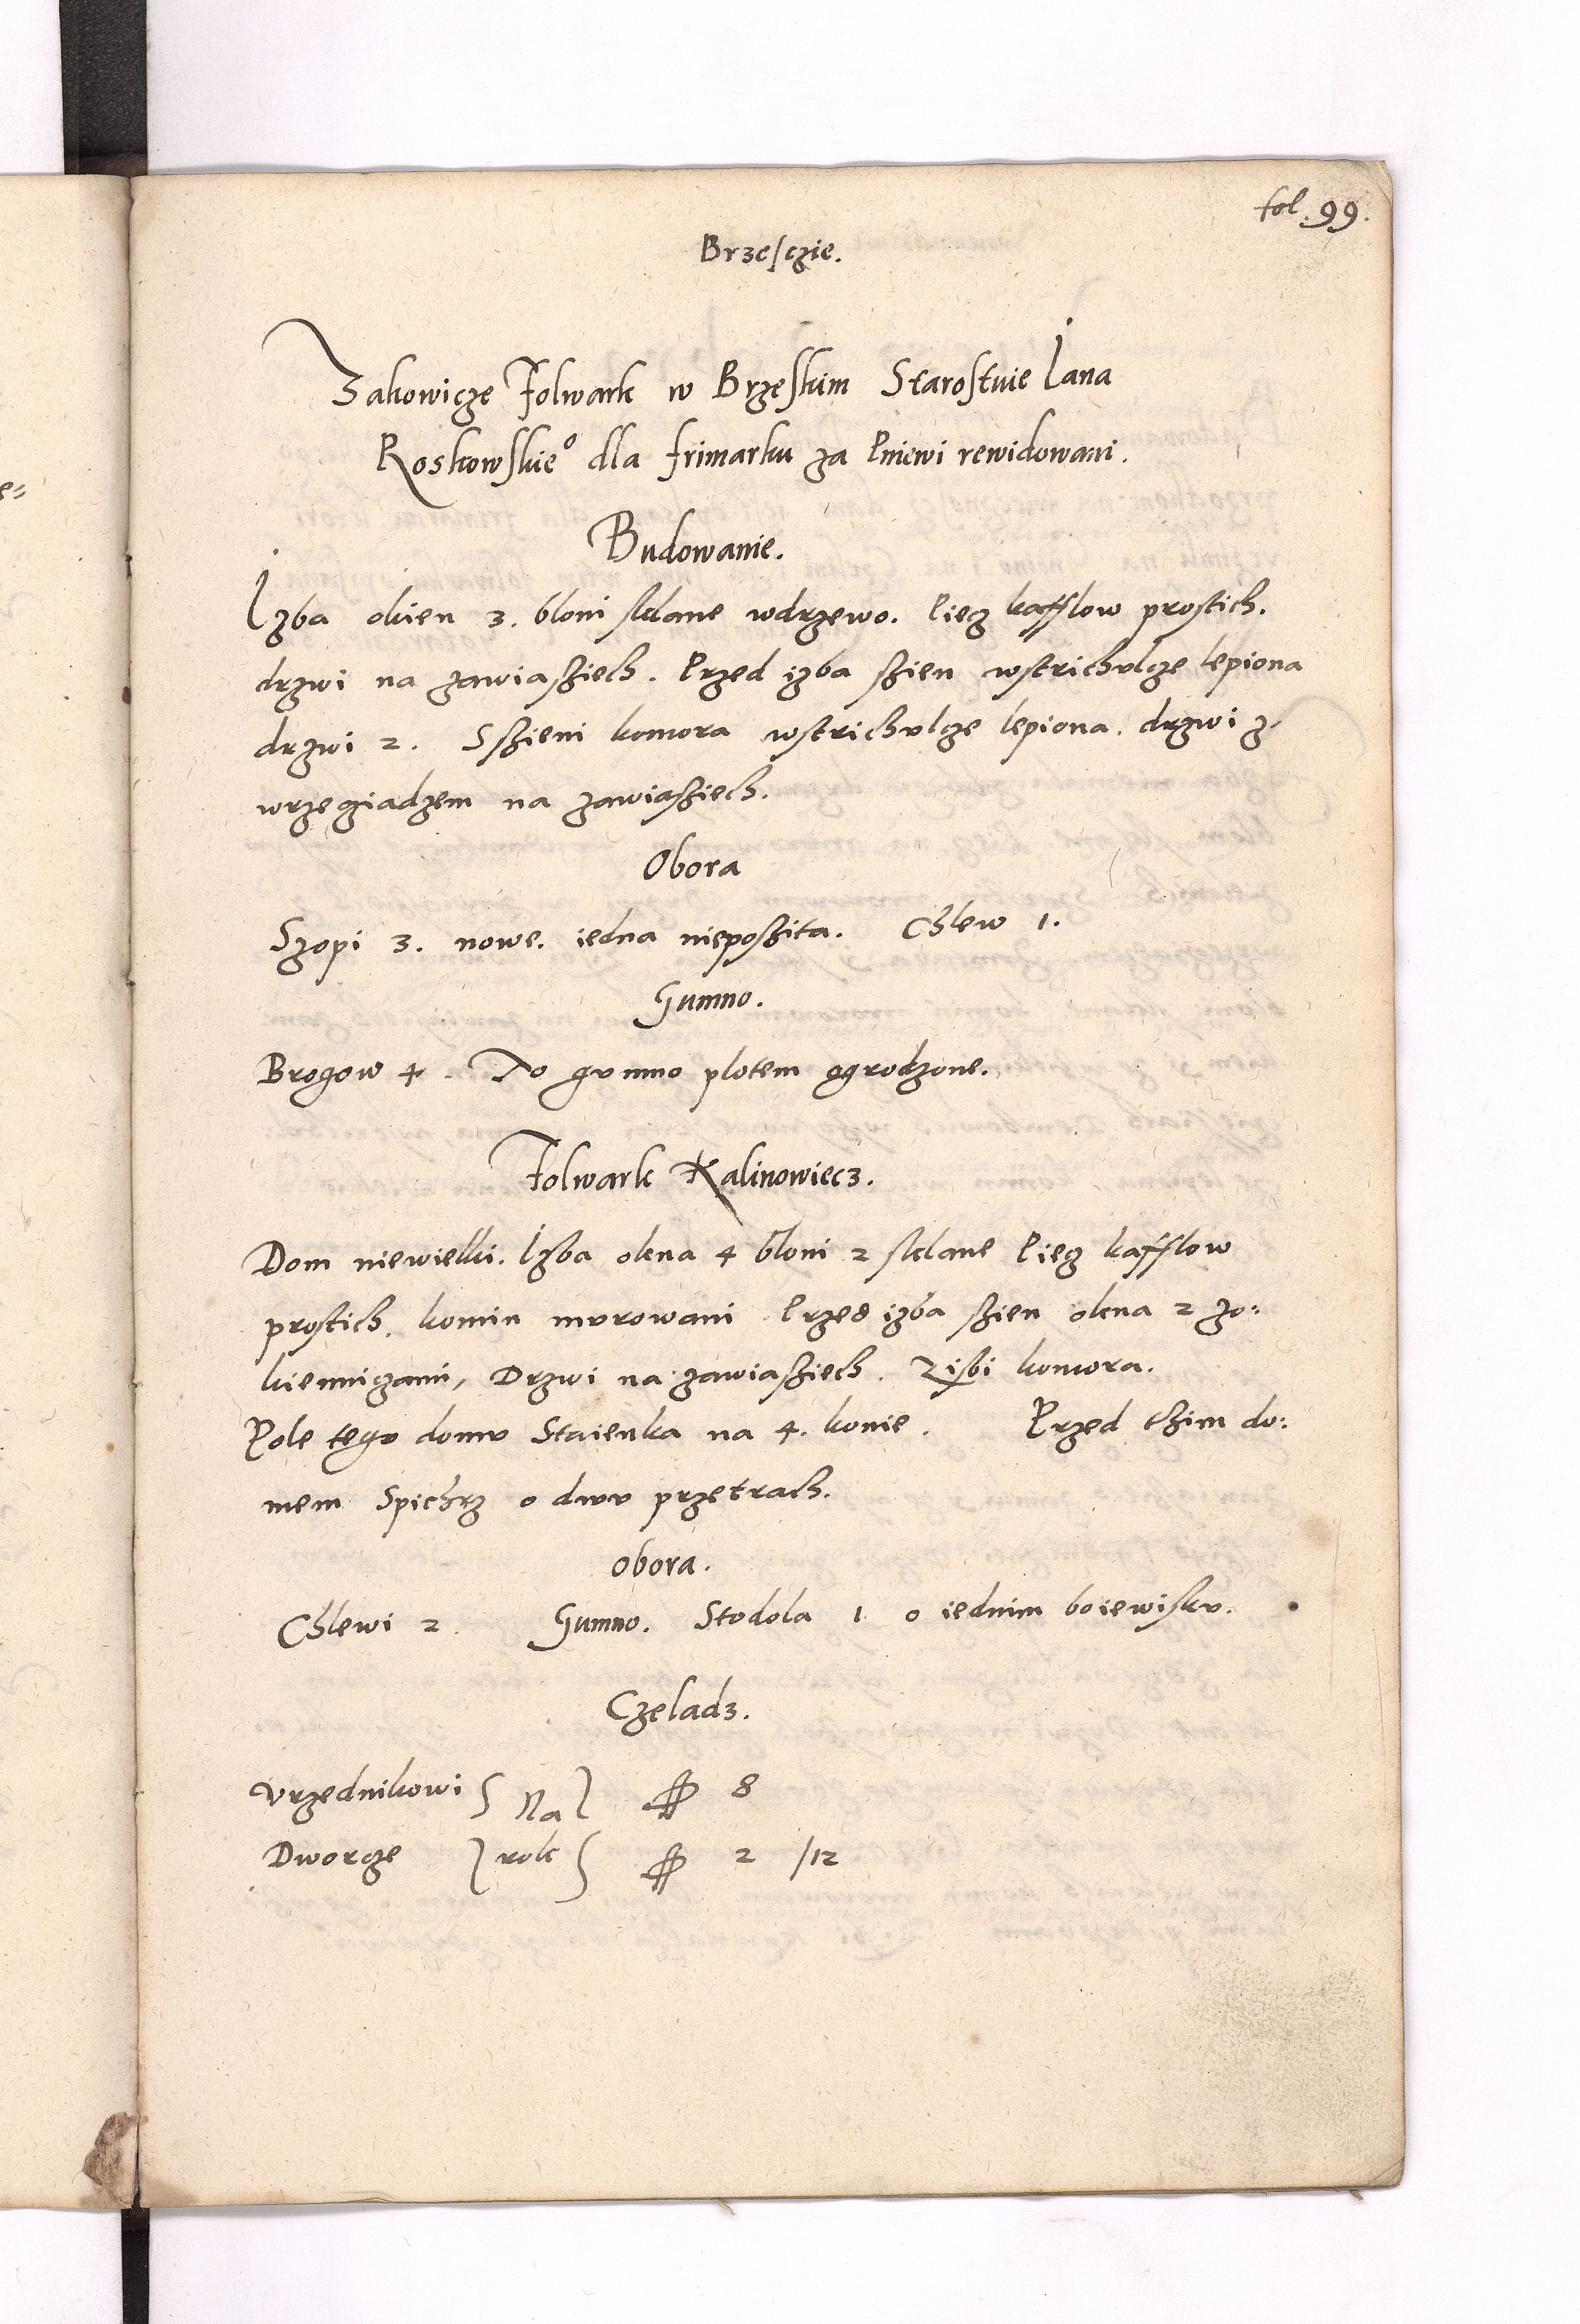 fol. 99.
Brzesczie.
Zakowicze Folwark w Brzeskim Starostwie Jana
Roskowskieº dla frimarku za Pniewi rewidowani.
Budowanie.
Izba okien 3. bloni sklane wdrzewo. Piecz kafflow prostich.
drzwi na zawiaßiech. Przed izba ßien wstrichulcze lepiona
drzwi 2. Sßieni komora wstrichulcze lepiona. drzwi z
wrzecziadzem na zawiaßiech.
Obora
Szopi 3. nowe. iedna nieposzita. Chlew 1.
Gumno.
Brogow 4. To gumno plotem ogrodzone.
Folwark Kalinowiecz.
Dom niewielki. Izba okna 4 bloni 2 sklane Piecz kafflow
prostich. komin murowani Przed izba ßien okna 2 zo:
kienniczami, Drzwi na zawiaßiech. Zisbi komora.
Pole tego domu Staienka na 4. konie. Przed thim do:
mem Spichrz o dwu przetrach.
obora.
Chlewi 2. Gumno. Stodola 1 o iednim boiewisku.
Czeladz.
Vrzednikowi Na 8
Dworcze rok 2 /12